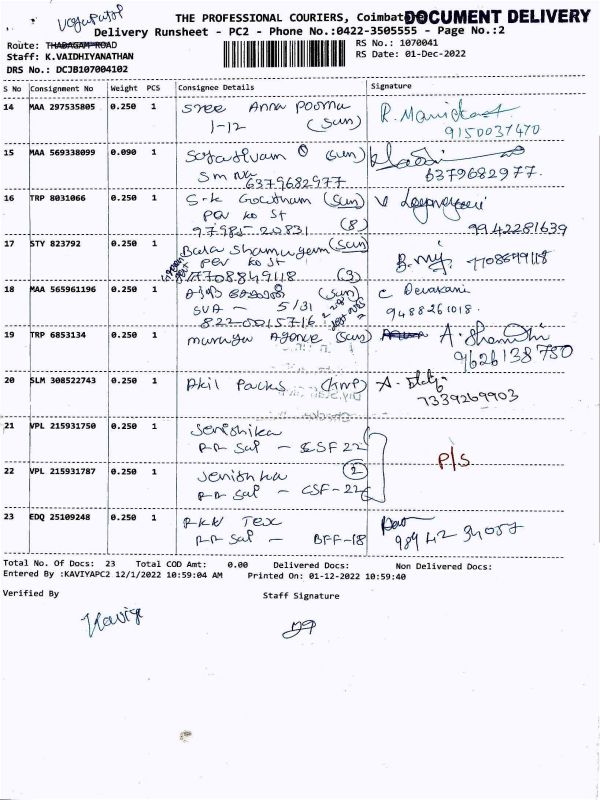 THE PROFESSIONAL COURIERS, Coimbato
DOCUMENT DELIVERY
Delivery Runsheet - PC2 - Phone No.:0422-3505555 - Page No.:2
Route: THADAGAM ROAD
RS No.: 1070041
Staff: K.VAIDHIYANATHAN
RS Date: 01-Dec-2022
DRS No.: DCJB107004102
S No Consignment No Weight PCS Consignee Details Signature
14 MAA 297535805 0.250 1 Sree Anna Poorna
1-12 (Sun)
9150037470
15 MAA 569338099 0.090 1 (Sun)
6379682977
6379682977.
16 TRP 8031066 0.250 1 S.K Gowtham (Sun)
per ko St
97985 20831 (8)
9942281639
17 STY 823792 0.250 1 Bala Shamugam (Sun)
per ko St
7708849118 (3)
18 MAA 565961196 0.250 1 (Sun) C Devakani
SVA - 5/31
8220015716
9488261018.
19 TRP 6853134 0.250 1 murugu Agence (Sun) A. Shanthi
9626138750
20 SLM 308522743 0.250 1 Akil Packs (HMP)
7339269903
21 VPL 215931750 0.250 1 Jenishika
RR Sal - CSF 22
P/S
22 VPL 215931787 0.250 1 Jenishka (2)
RR Sal - CSF-22
23 EDQ 25109248 0.250 1 RKW Tex
RR Sal - BFF-18
Total No. Of Docs: 23 Total COD Amt: 0.00 Delivered Docs: Non Delivered Docs:
Entered By :KAVIYAPC2 12/1/2022 10:59:04 AM Printed On: 01-12-2022 10:59:40
Verified By Staff Signature
Kaviya